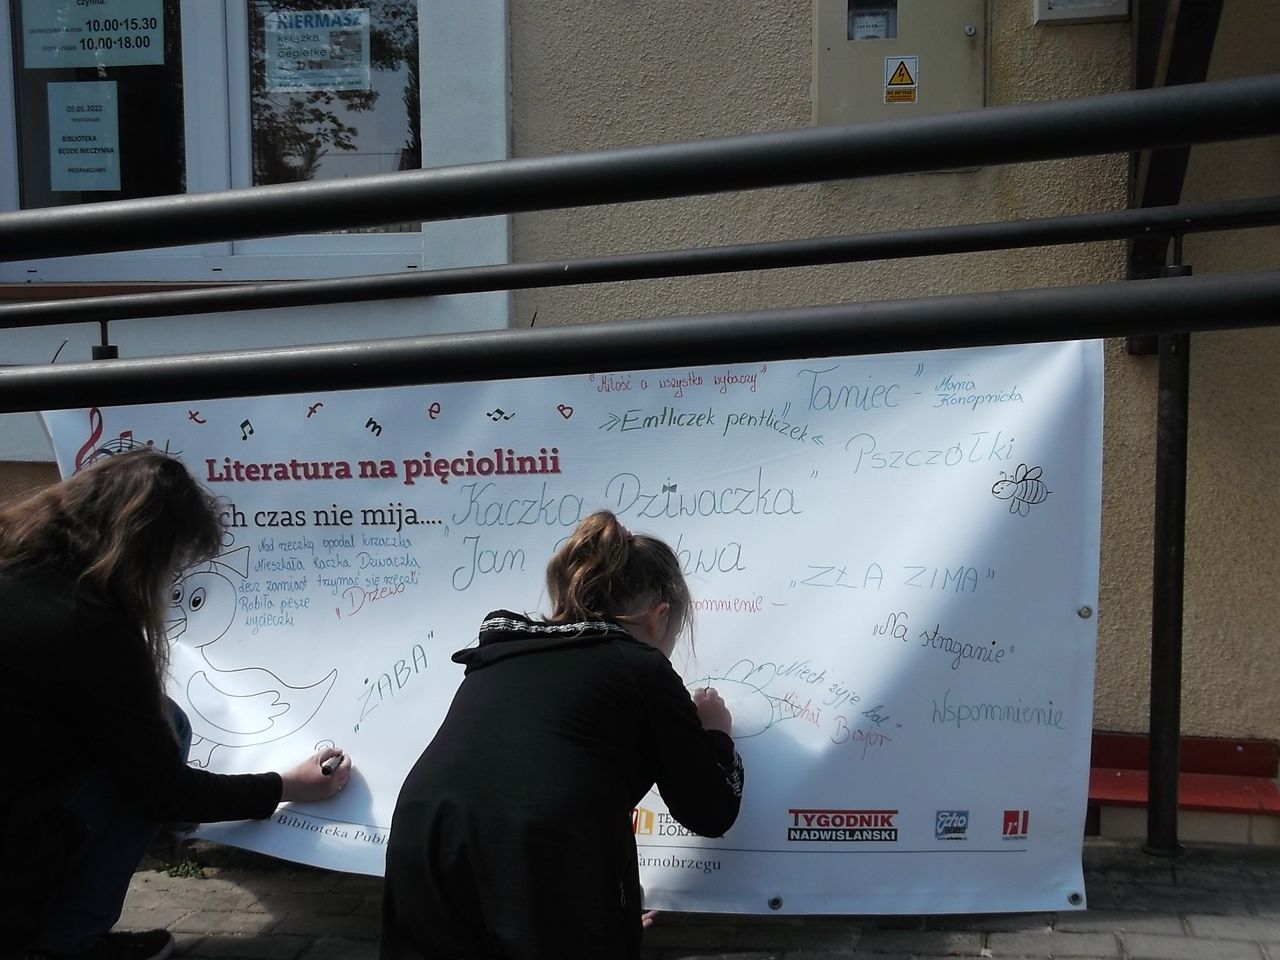 czynna:
10.00-15.30
10.00-18.00
KIERMASZ
książka
za
cegiełkę
09.05.2022
BIBLIOTEKA
BĘDZIE NIECZYNNA
PRZEPRASZAMY
"Miłość ci wszystko wybaczy"
"Taniec" - Maria
Konopnicka
»Emtliczek pentliczek«
Pszczółki
t f m e b
Literatura na pięciolinii
ch czas nie mija....
"Kaczka Dziwaczka"
Jan
Nad rzeczką opodal krzaczka
Mieszkała kaczka Dziwaczka
Lecz zamiast trzymać się rzeczki
Robiła piesze
wycieczki
"Drzewo"
"ZŁA ZIMA"
"Na straganie"
"ŻABA"
"Niech żyje bal"
Michał
Bajor
Wspomnienie
Biblioteka Publ
LOKA
TYGODNIK
NADWIŚLAŃSKI
Echo
Tarnobrzegu